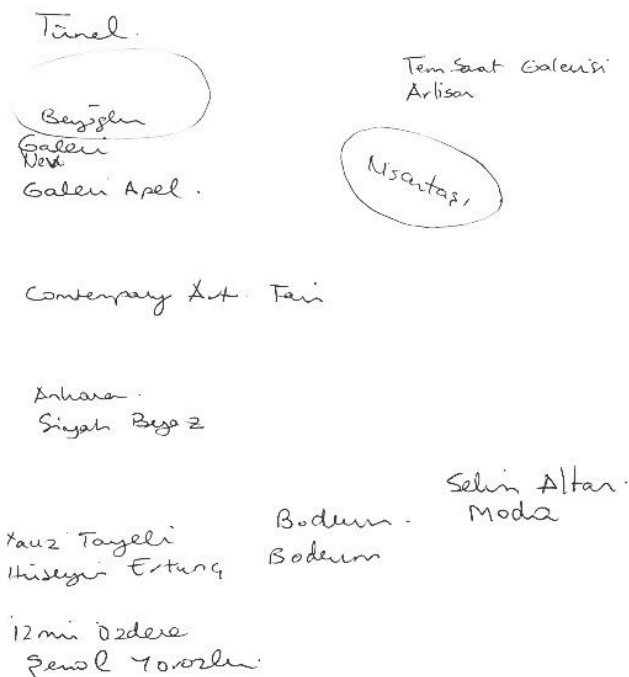 Tünel.
Beyoğlu
Galeri
Nev
Galeri Apel.
Tem Sanat Galerisi
Artisan
Nişantaşı
Contempary Art Fair
Ankara.
Siyah Beyaz
Selim Altan.
Moda
Yavuz Tanyeli Bodrum.
Hüseyin Ertunç Bodrum
İzmir Özdere
Şenol Yorozlu